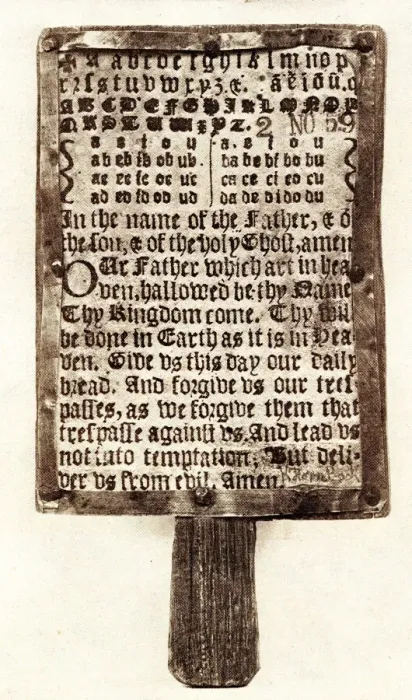 ✠ A a b c d e f g h i k l m n o p
q r ſ s t u v w x y z. &. a e i o u. 
A B C D E F G H I K L M N O P
Q R S T U W X Y Z. 2 No 59
a e i o u a. e i o u
ab eb ib ob ub. ba be bi bo bu
ac ec ic oc uc ca ce ci co cu
ad ed id od ud da de di do du
In the name of the Father, & o
the ſon, & of the holy Ghoſt, amen
OUr Father which art in hea
ven, hallowed be thy Name
Thy Kingdom come. Thy will
be done in Earth as it is in Hea
ven. Give vs this day our daily
bread. And forgive vs our treſ-
paſſes, as we forgive them that
treſpaſſe againſt vs. And lead vs
not into temptation, But deli-
ver vs from evil. Amen